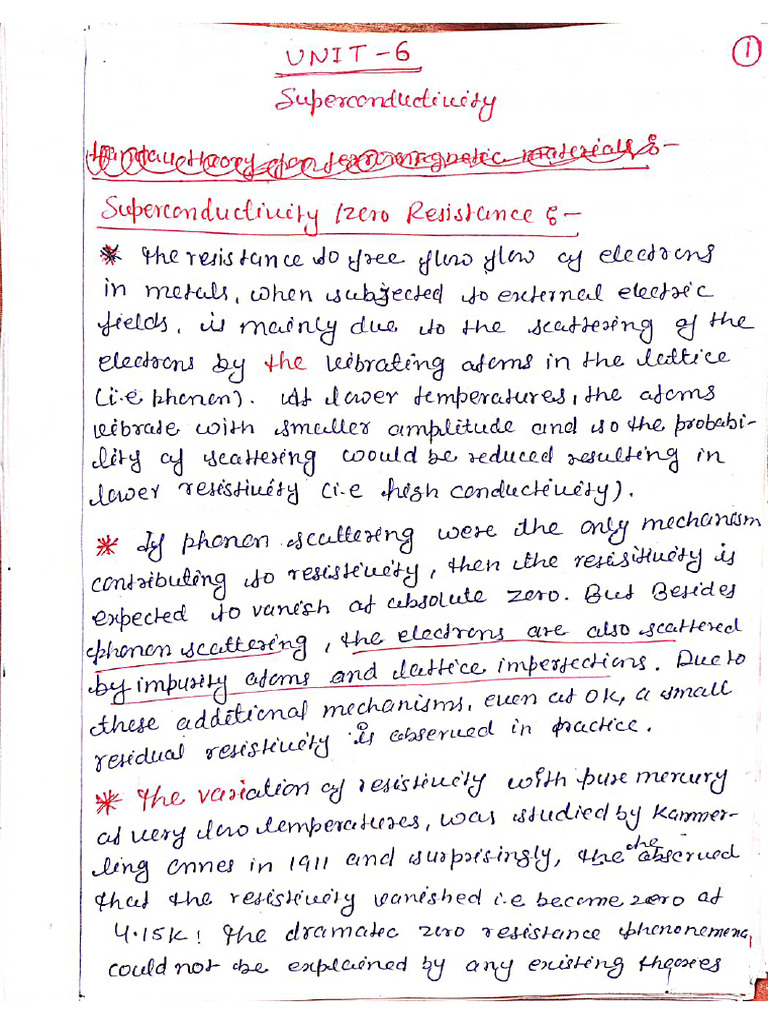 UNIT-6
1
Superconductivity
Superconductivity /zero Resistance :-
* The resistance to free flow flow of electrons
in metals, when subjected to external electric
fields, is mainly due to the scattering of the
electrons by the vibrating atoms in the lattice
(i.e phonon). At lower temperatures, the atoms
vibrate with smaller amplitude and so the probabi-
lity of scattering would be reduced resulting in
lower resistivity (i.e high conductivity).
* If phonon scattering were the only mechanism
contributing to resistivity, then the resisitivity is
expected to vanish at absolute zero. But Besides
phonon scattering, the electrons are also scattered
by impurity atoms and lattice imperfections. Due to
these additional mechanisms, even at 0K, a small
residual resistivity is observed in practice.
* The variation of resistivity with pure mercury
at very low temperatures, was studied by Kammer-
ling onnes in 1911 and surprisingly, the he observed
that the resistivity vanished i.e become zero at
4.15K! The dramatic zero resistance phenonemena,
could not be explained by any existing theories